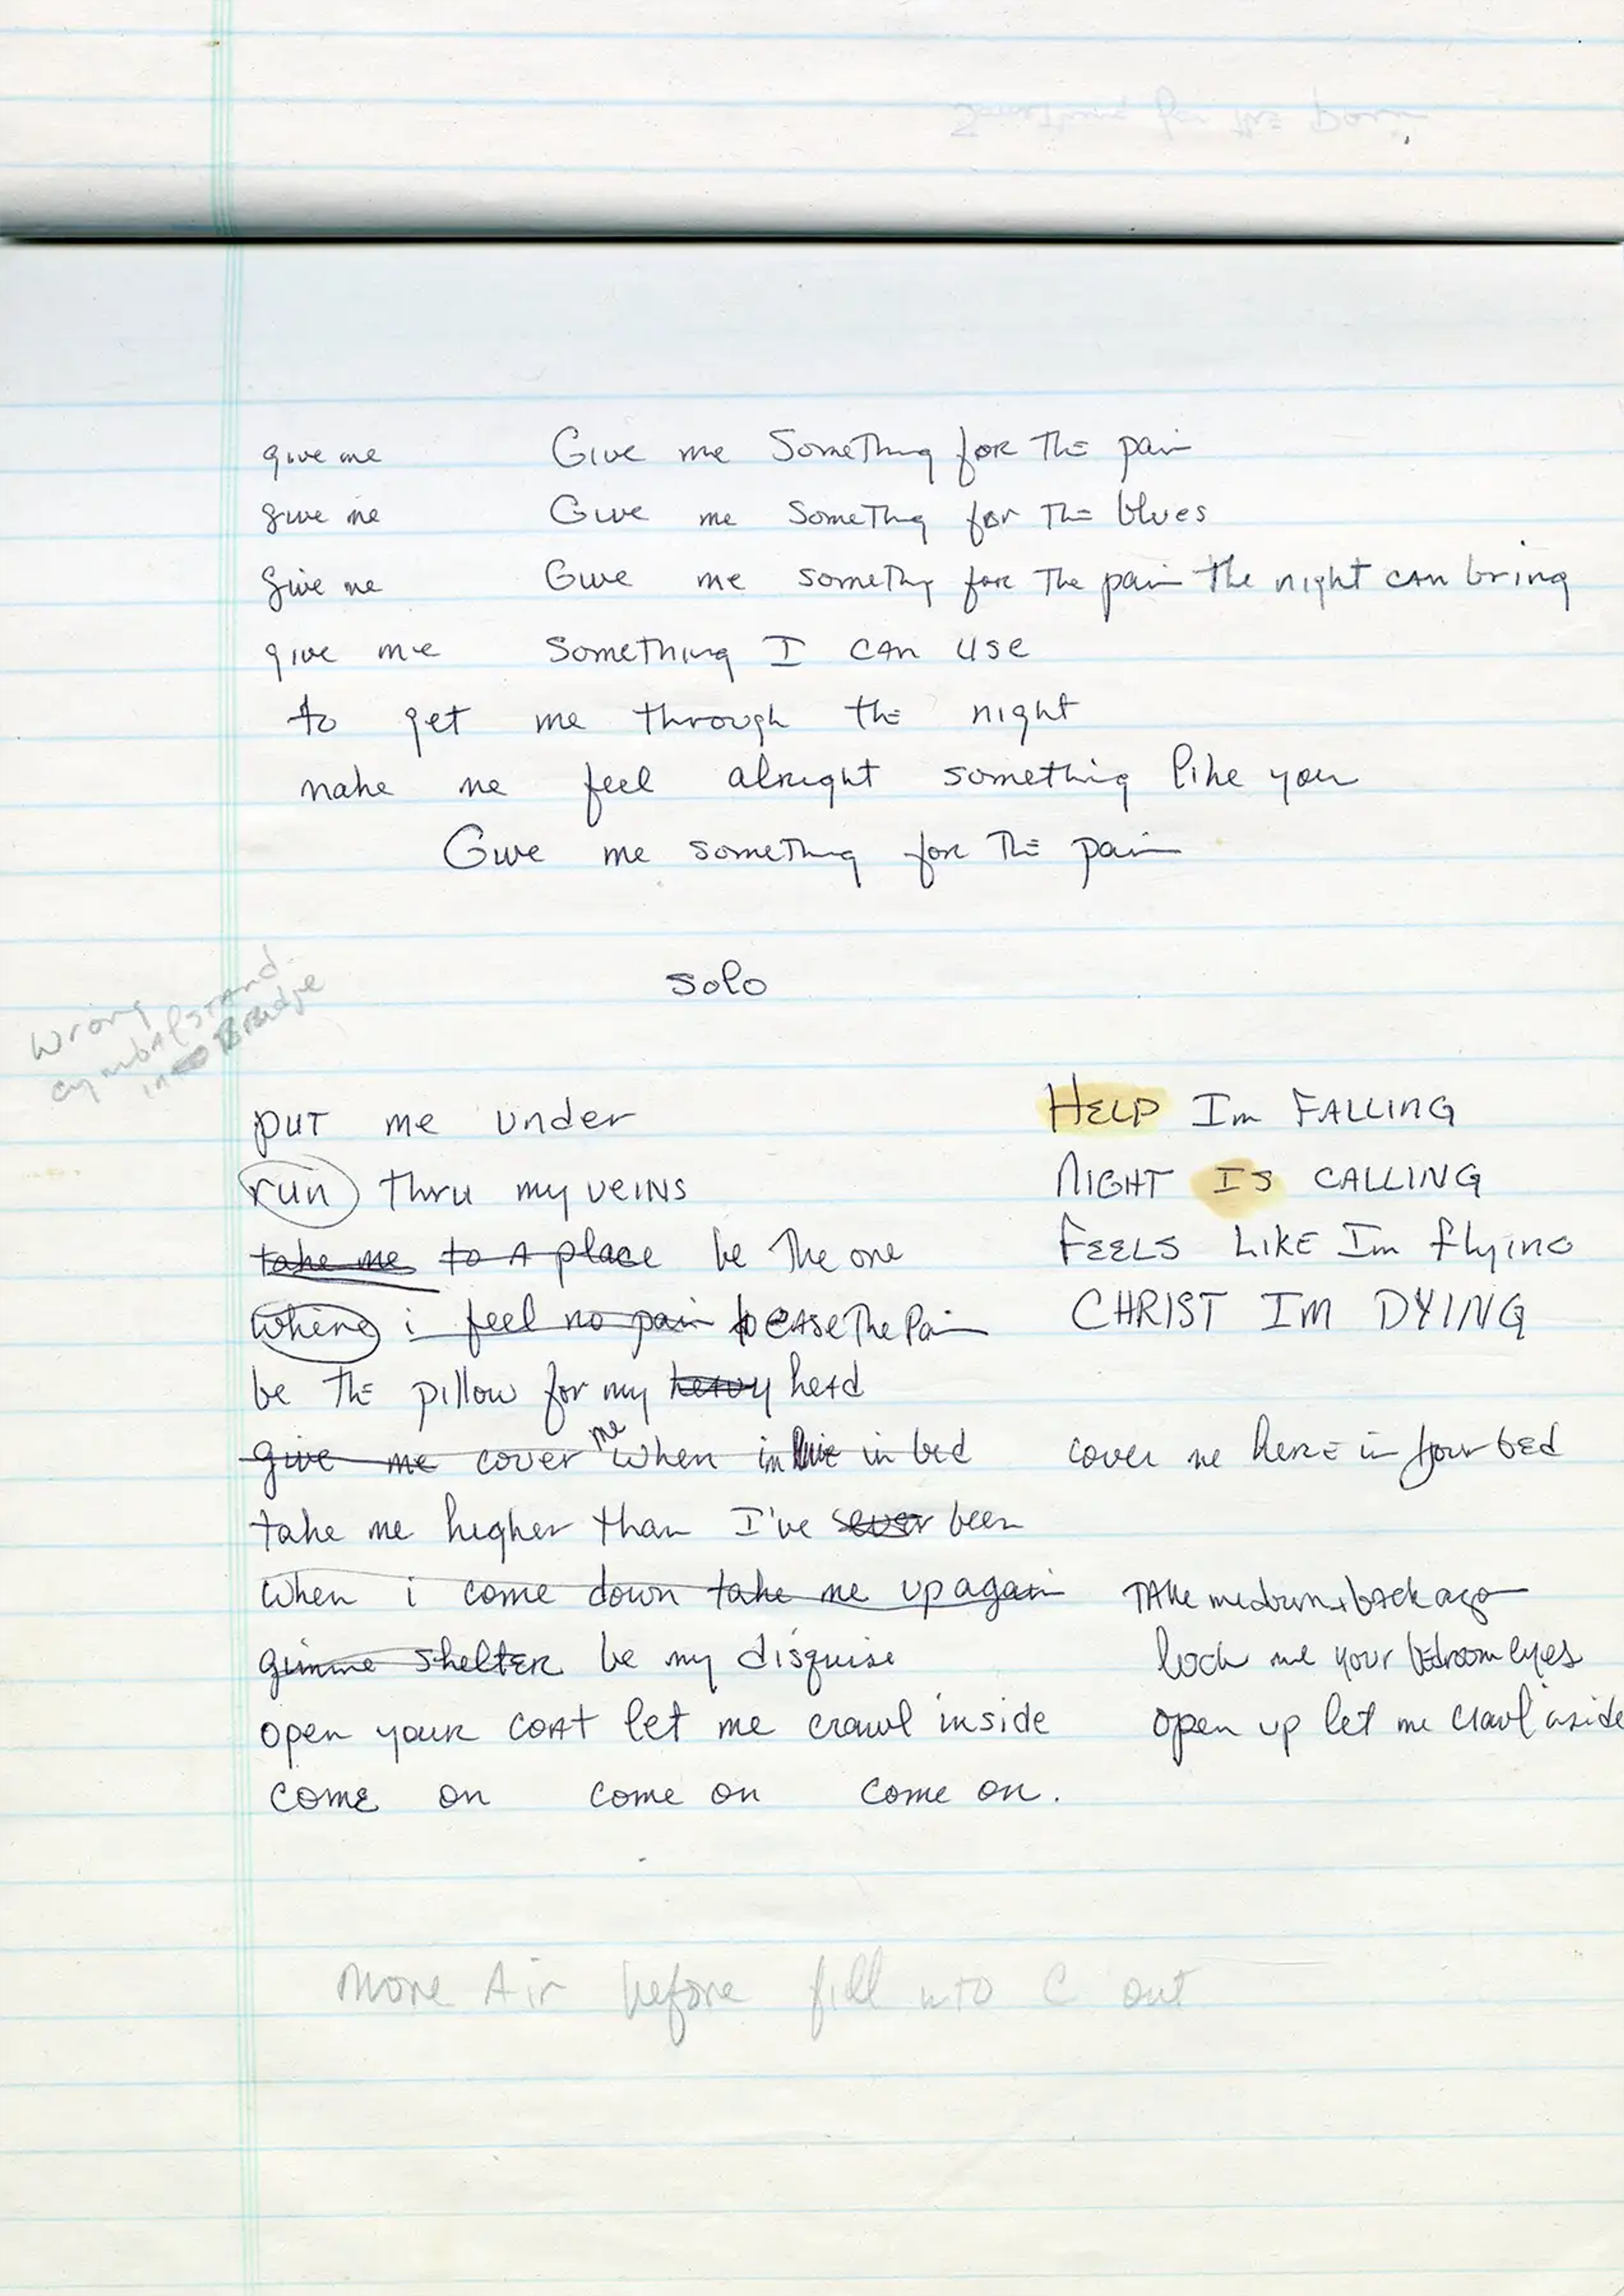 Something for the Pain
give me Give me Something for The pain
give me Give me Something for The blues
give me Give me something for The pain the night can bring
give me something I can use
to get me through the night
make me feel alright something like you
Give me something for The pain
solo
Wrong
cymbal stand
into Bridge
put me under HELP Im FALLING
run thru my veins NIGHT IS CALLING
take me to A place be The one FEELS LIKE Im flying
where i feel no pain to ease The Pain CHRIST IM DYING
be the pillow for my heavy head
give me cover me when im in bed cover me here in your bed
take me higher than I've ever been
when i come down take me up again TAke me down + back
gimme shelter be my disguise me your bedroom eyes
open your coat let me crawl inside open up let me crawl inside
come on come on come on.
more Air before fill into C out